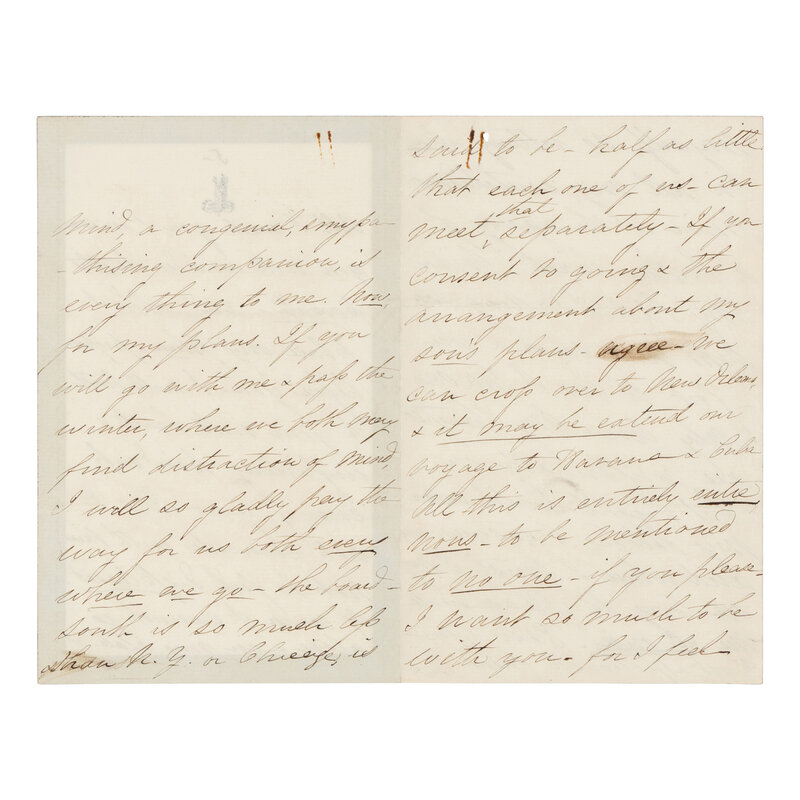 mind, a congenial, smypa-
-thising companion, is
every thing to me. Now,
for my plans. If you
will go with me & pass the
winter, where we both may
find distraction of mind,
I will so gladly pay the
way for us both every
where we go - the board-
south is so much less
than N. Y. or Chicago, is
said to be - half as little
that each one of us - can
that
meet, separately - If you
consent to going & the
arrangement about my
son's plans - agree - we
can cross over to New Orleans,
& it may be extend our
voyage to Havana & Cuba
All this is entirely entre
nous - to be mentioned
to no one - if you please -
I want so much to be
with you - for I feel